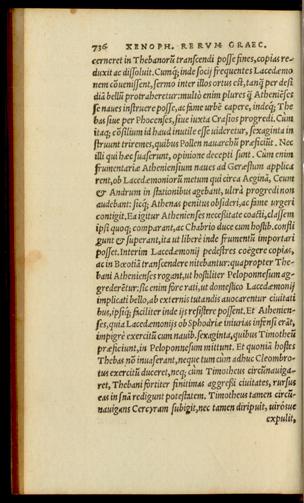 736 XENOPH. RERVM GRAEC.
cerneret in Thebanorũ transcendi posse fines, copias re-
duxit ac dissoluit. Cumq; inde socij frequentes Lacedæmo
nem cõuenissent, sermo inter illos ortus est, tanq̃ per desi
diã bellũ protraheretur: multò enim plures q̃ Atheniẽses
se naues instruere posse, ac fame urbẽ capere, indeq; The
bas siue per Phocenses, siue iuxta Crasios progredi. Cum
itaq; cõsilium id haud inutile esse uideretur, sexaginta in
struunt triremes, quibus Pollen nauarchũ præficiũt. Nec
illi qui hæc suaserunt, opinione decepti sunt. Cùm enim
frumentariæ Atheniensium naues ad Geræstum applica
rent, ob Lacedæmoniorũ metum qui circa Aeginã, Ceum
& Andrum in stationibus agebant, ultrà progredi non
audebant: sicq; Athenas penitus obsideri, ac fame urgeri
contigit. Ea igitur Athenienses necessitate coacti, classem
ipsi quoq; comparant, ac Chabrio duce cum hostib. consli
gunt & superant, ita ut liberè inde frumentũ importari
posset. Interim Lacedæmonij pedestres coëgere copias,
ac in Bœotiã transcendere nitebantur: quapropter The-
bani Athenienses rogant, ut hostiliter Peloponnesum ag-
grederẽtur: sic enim fore rati, ut domestico Lacedæmonij
implicati bello, ab externis tutandis auocarentur ciuitati
bus, ipsiq; faciliter inde ijs resistere possent. Et Athenien-
ses, quia Lacedæmonijs ob Sphodriæ iniurias infensi erãt,
impigrè exercitũ cum nauib. sexaginta, quibus Timotheũ
præficiunt, in Peloponnesum mittunt. Et quoniã hostes
Thebas nõ inuaserant, neque tum cùm adhuc Cleombro-
tus exercitũ duceret, neq; cùm Timotheus circũnauiga-
ret, Thebani fortiter finitimas aggressi ciuitates, rursus
eas in suã redigunt potestatem. Timotheus tamen circũ-
nauigans Cercyram subigit, nec tamen diripuit, uirósue
expulit,